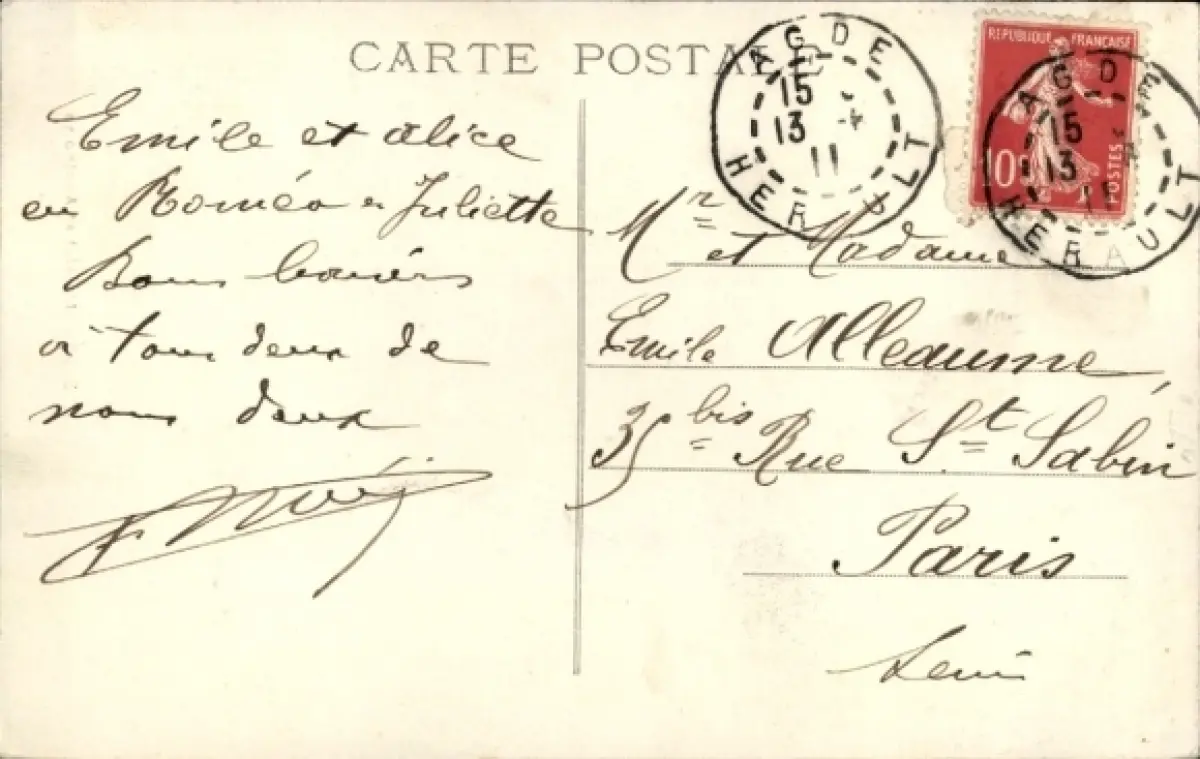 CARTE POSTALE
Emile et Alice
en Roméo et Juliette
Bons baisers
à tous deux de
nous deux
Mr et Madame
Emile Alleaume,
35 bis Rue St Sabin
Paris
Seine
AGDE
15
13 4
11
HERAULT
REPUBLIQUE FRANÇAISE
10c
POSTES
AGDE
15
13 4
11
HERAULT